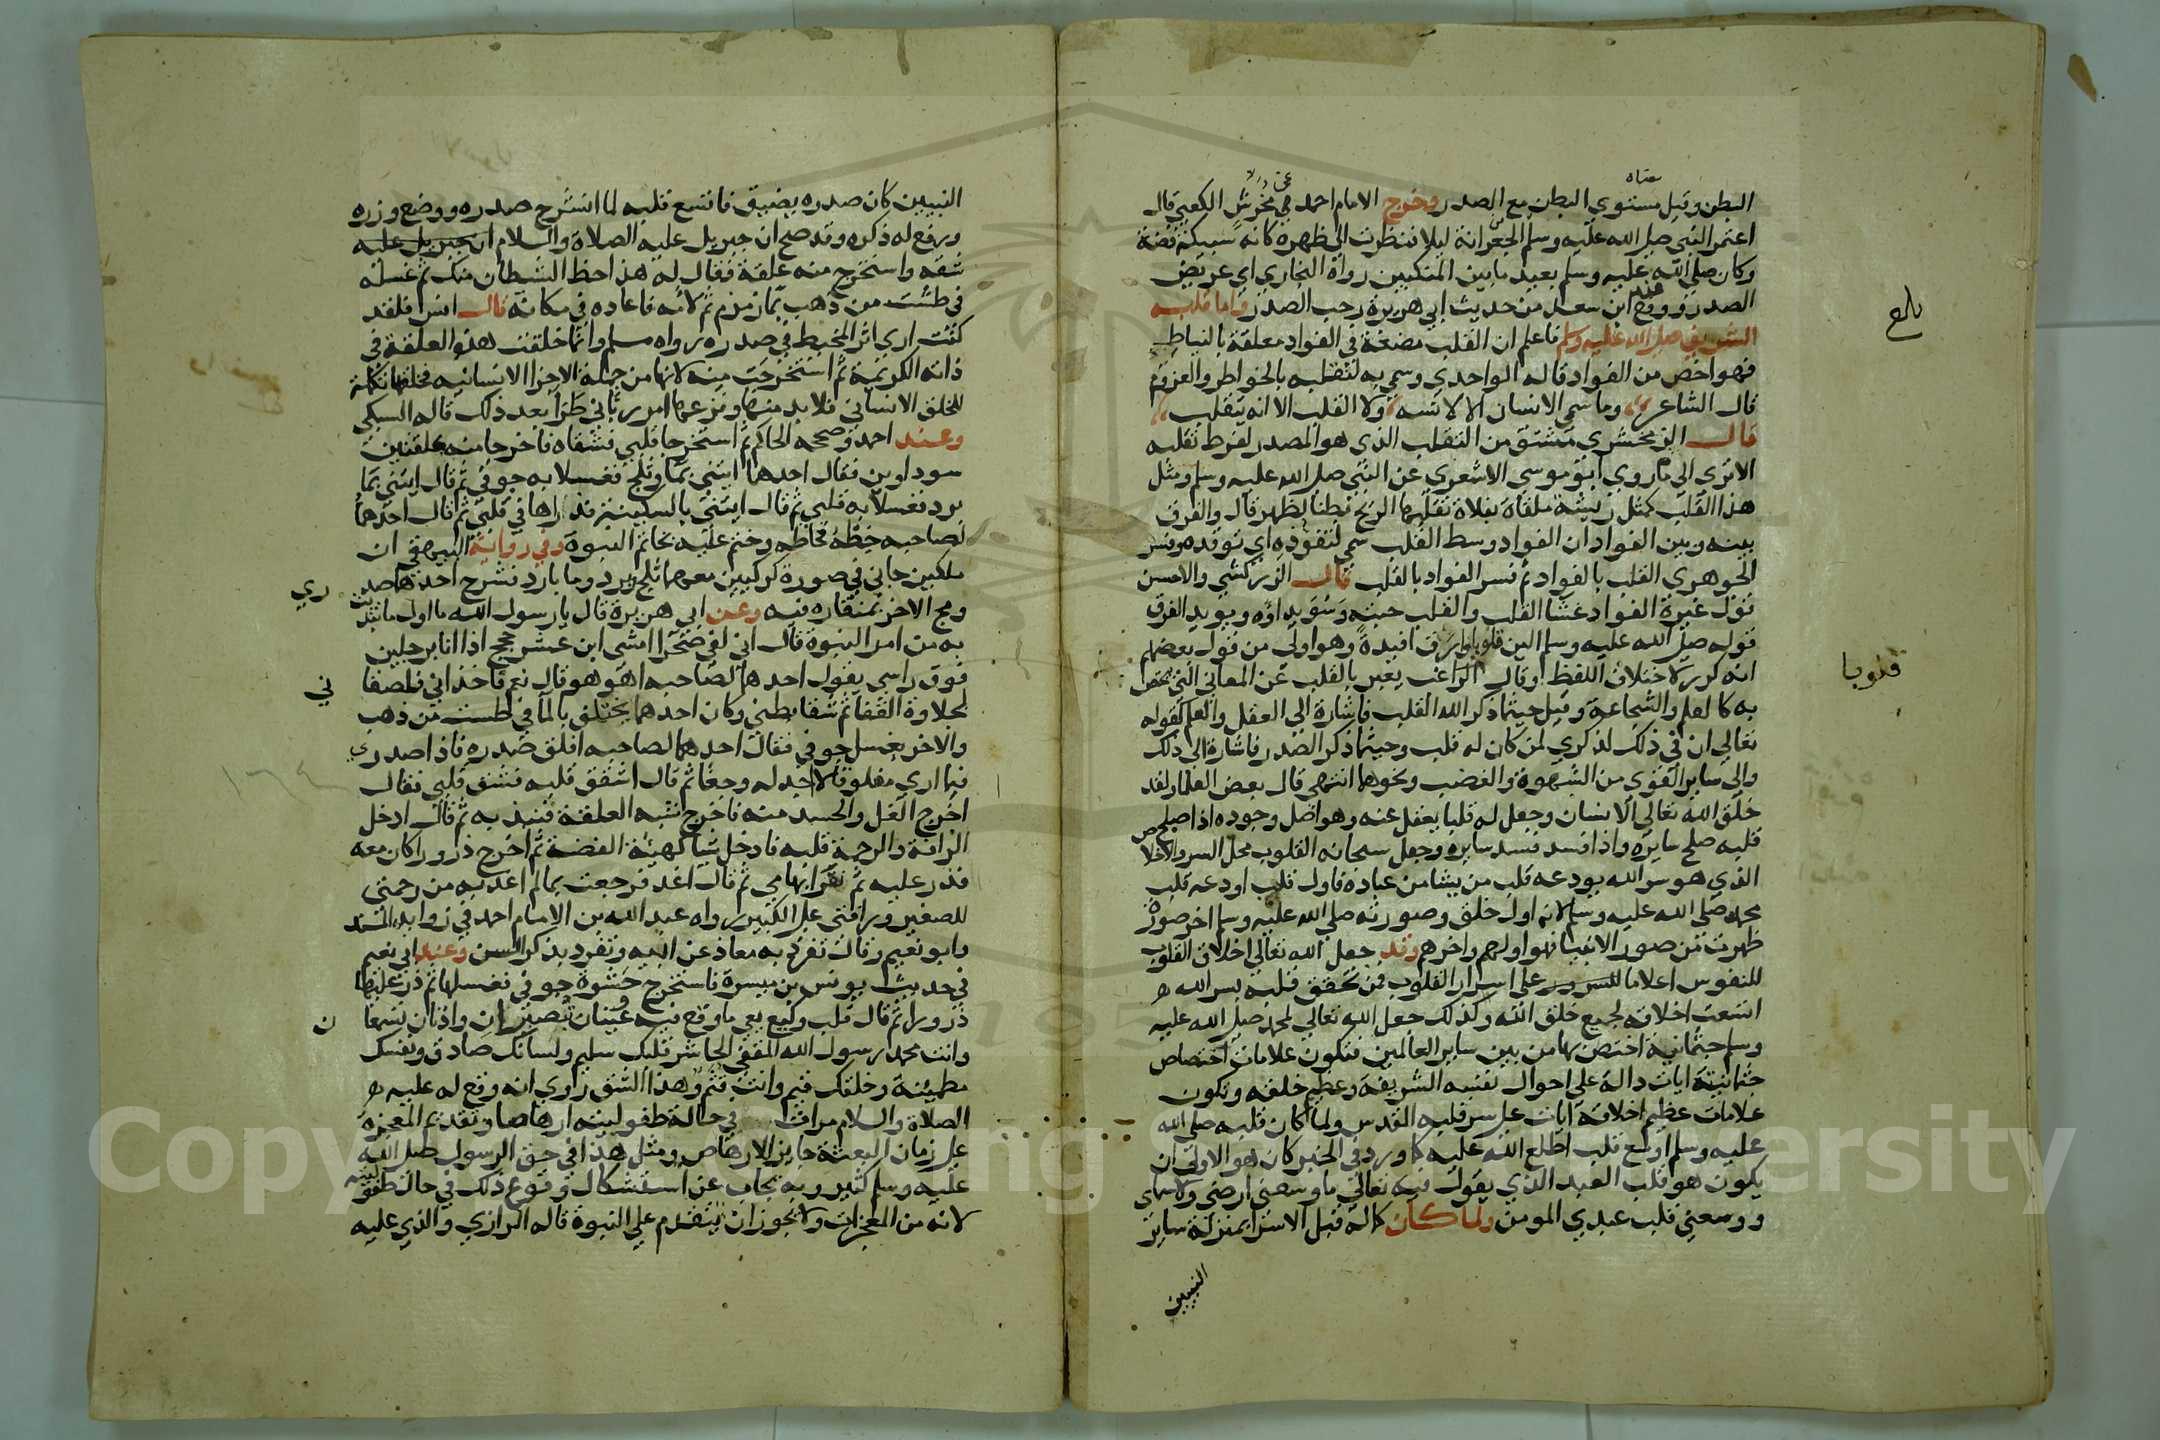 معناه
البطن وقيل مستوي البطن مع الصدر وخرج الامام احمد عن مخرش الكعبي قال
اعتمر النبي صلى الله عليه وسلم الجعرانة ليلا فنظرت الي ظهره كانه سبيكة فضة
وكان صلي الله عليه وسلم بعيد ما بين المنكبين رواه البخاري اي عريض
الصدر ووقع عند ابن سعد من حديث ابي هريرة رحب الصدر واما قلبه
الشريف صلى الله عليه وسلم فاعلم ان القلب مضغة في الفواد معلقة بالنياط
فهو اخص من الفواد قاله الواحدي وسمي به لتقلبه بالخواطر والعزوم
قال الشاعر وما سمي الانسان الا لانسه ولا القلب الا انه يتقلب
قال الزمخشري مشتق من التقلب الذي هو المصدر لفرط تقلبه
الا تري الي ما روي ابو موسي الاشعري عن النبي صلى الله عليه وسلم ومثل
هذا القلب كمثل ريشة ملقاة بفلاة تقلبها الريح بطنا لظهر قال والفرق
بينه وبين الفواد ان الفواد وسط القلب سمي لتفوده اي توقده وفسر
الجوهري القلب بالفواد ثم فسر الفواد بالقلب قال الزركشي والاحسن
قول غيره الفواد غشا القلب والقلب حبته وسويداوه ويويد الفرق
قوله صلى الله عليه وسلم الين قلوبا وارق افيدة وهو اولي من قول بعضهم
قلوبا
انه كرر لاختلاف اللفظ وقال الراغب يعبر بالقلب عن المعاني التي تختص
به كالعلم والشجاعة وقيل حيثما ذكر الله القلب فاشارة الي العقل والعلم كقوله
تعالي ان في ذلك لذكري لمن كان له قلب وحيثما ذكر الصدر فاشارة الي ذلك
والي ساير القوي من الشهوة والغضب ونحوها انتهي قال بعض العلما ولقد
خلق الله تعالي الانسان وجعل له قلبا يعقل عنه وهو اصل وجوده اذا صلح
قلبه صلح سايره واذا فسد فسد سايره وجعل سبحانه القلوب محل السر والاخلاص
الذي هو سر الله يودعه قلب من يشا من عباده فاول قلب اودعه قلب
محمد صلي الله عليه وسلم لانه اول خلق وصورته صلي الله عليه وسلم اخر صورة
ظهرت من صور الانبيا فهو اولهم واخرهم وقد جعل الله تعالي اخلاق القلوب
للنفوس اعلاما على اسرار القلوب فمن تحقق قلبه بسر الله
اتسعت اخلاقه لجميع خلق الله وكذلك جعل الله تعالي لمحمد صلى الله عليه
وسلم جثمانية اختص بها من بين ساير العالمين فتكون علامات اختصاص
جثمانيته ايات دالة علي احوال نفسه الشريفة وعظيم خلقه وتكون
علامات عظيم اخلاقه ايات على سر قلبه المقدس ولما كان قلبه صلى الله
عليه وسلم اوسع قلب اطلع الله عليه كما ورد في الخبر كان هو الاولي ان
يكون هو قلب العبد الذي يقول فيه تعالي ما وسعني ارضي ولا سماي
ووسعني قلب عبدي المومن ولما كان كماله قبل الاسرا بمنزلة ساير
النبيين
النبيين كان صدره يضيق فاتسع قلبه لما انشرح صدره ووضع وزره
ورفع له ذكره وقد صح ان جبريل عليه الصلاة والسلام ان جبريل عليه
شقه واستخرج منه علقة فقال له هذا حظ الشيطان منك ثم غسله
في طشت من ذهب بما زمزم ثم لامه فاعاده في مكانه قال انس فلقد
كنت اري اثر المخيط في صدره رواه مسلم وانما خلقت هذه العلقة في
ذاته الكريمة ثم استخرجت منه لانها من جملة الاجزا الانسانيه فخلقها تكملة
للخلق الانساني فلا بد منها ونزعها امر رباني طرا بعد ذلك قاله السبكي
وعند احمد وصححه الحاكم ثم استخرجا قلبي فشقاه فاخرجا منه علقتين
سوداوين فقال احدهما ايتني بما وثلج فغسلا به جوفي ثم قال ايتني بما
برد فغسلا به قلبي ثم قال ايتني بالسكينة فذراها في قلبي ثم قال احدهما
لصاحبه خطه فخاطه وختم عليه بخاتم النبوة وفي رواية البيهقي ان
ملكين جاني في صورة كركيين معهما ثلج وبرد وما بارد فشرح احدهما صد
ري
ومج الاخر بمنقاره فيه وعن ابي هريرة قال يا رسول الله ما اول ما ابتديت
به من امر النبوة قال اني لفي صحرا امشي ابن عشر حجج اذا انا برجلين
فوق راسي يقول احدهما لصاحبه اهو هو قال نعم فاخذاني فلصقا
ني
لحلاوة القفا ثم شقا بطني وكان احدهما يختلف بالما في طست من ذهب
والاخر يغسل جوفي فقال احدهما لصاحبه افلق صدره فاذا صدري
فيما اري مفلوقا لا اجد له وجعا ثم قال اشقق قلبه فشق قلبي فقال
اخرج الغل والحسد منه فاخرج شبه العلقة فنبذ به ثم قال ادخل
الرافة والرحمة قلبه فادخل شيا كهيئة الفضة ثم اخرج ذرورا كان معه
فذر عليه ثم نقر ابهامي ثم قال اغد فرجعت بما لم اغد به من رحمتي
للصغير ورافتي على الكبير رواه عبد الله بن الامام احمد في زوايد المسند
وابو نعيم وقال تفرد به معاذ عن ابيه وتفرد بذكر السن وعند ابي نعيم
في حديث يونس بن ميسرة فاستخرج حشوة جوفي فغسلها ثم ذر عليها
ذرورا ثم قال قلب وكيع يعي ما وقع فيه عينان تبصران واذنان تسمعا
ن
وانت محمد رسول الله المقفي الحاشر قلبك سليم ولسانك صادق ونفسك
مطمينة وخلقك قيم وانت قثم وهذا الشق روي انه وقع له عليه
الصلاة والسلام مرات في حالة طفوليته ارهاصا وتقديم المعجزة
على زمان البعثة جايز للارهاص ومثل هذا في حق الرسول صلى الله
عليه وسلم كثير وبه يجاب عن استشكال وقوع ذلك في حال طفوليته
لانه من المعجزات ولا يجوز ان يتقدم علي النبوة قاله الرازي والذي عليه